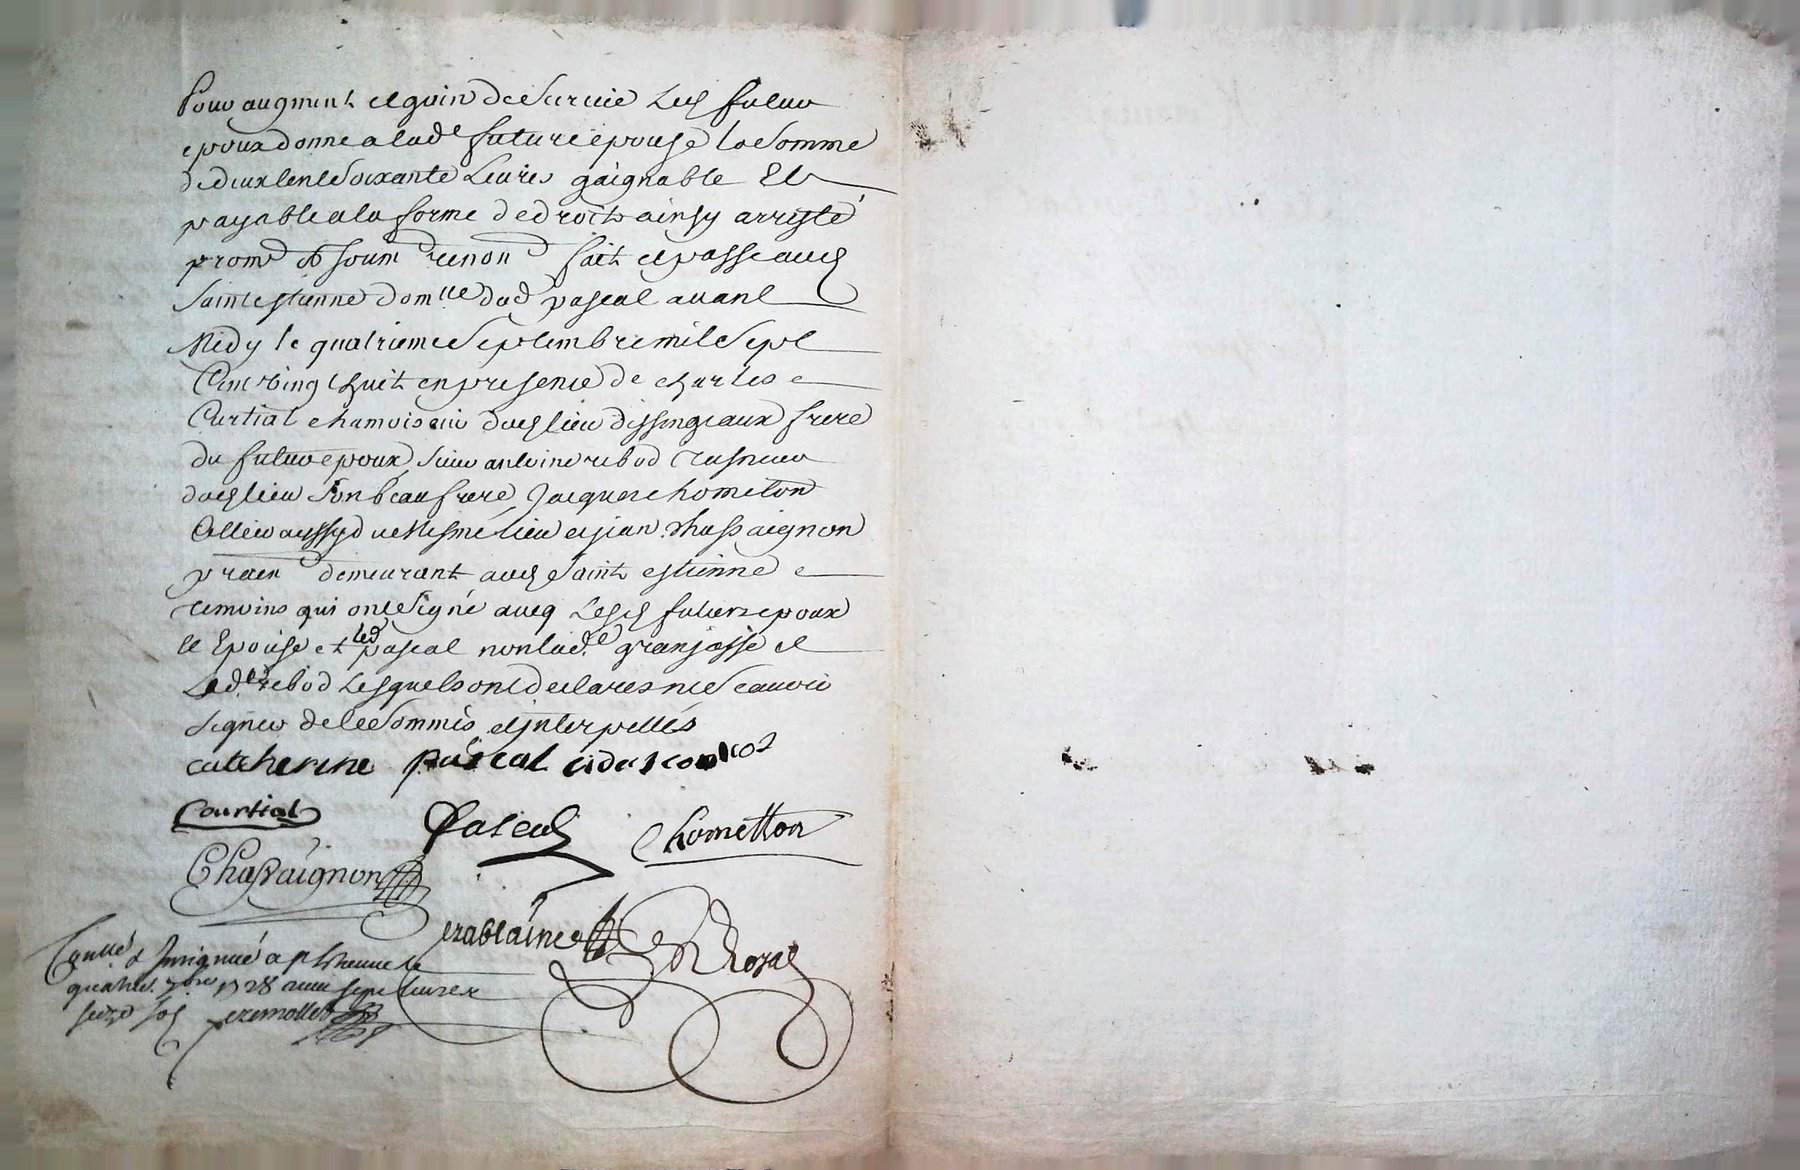 Pour augment et gain de survie Led futur
epoux donne a lade future epouse la somme
de deux cent soixante Livres gaignable Et
payable a la forme de droit ainsy arresté
prom ob soum renon fait et passé aud
Saint estienne domlle dud pascal avant
Midy le quatrieme septembre mil sept
Cent vingt huit en presence de charles
Curtial chamoiseur dud lieu dissingeaux frere
du futur epoux, sieur antoine rebod
dud lieu son beau frere, Jacques chometon
aussy du mesme lieu et jean chassaignon
praen demeurant aud saint estienne
temoins qui ont signé aveq Lesd futurs epoux
et Epouse et led pascal non lade granjasse et
Led rebod Lesquels ont declares ne scavoir
signer de ce sommés et interpellés
catherine pascal
Courtial Pascal Chometton
Chassaignon
erablaine
Conllé & Insignué a st Estienne le
quatre 7bre 1728 sept livres
seize sol